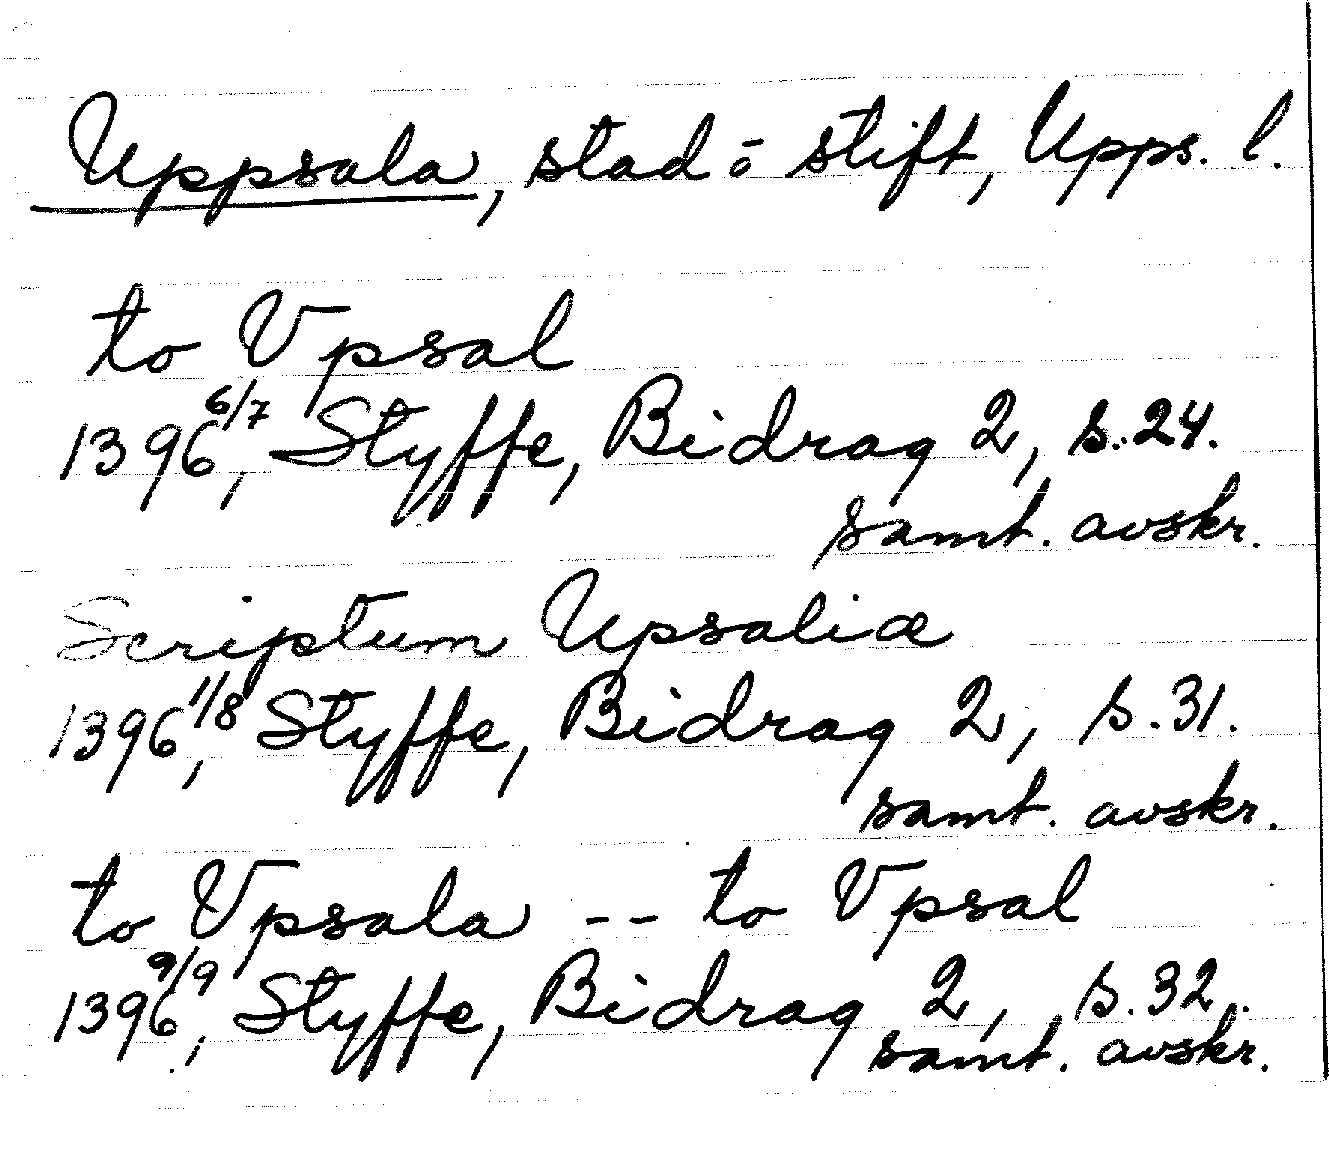 Uppsala, stad o stift, Upps. l.
to Vpsal
1396 6/7, Styffe, Bidrag 2, s. 24.
samt. avskr.
Scriptum Upsaliæ
1396 1/8, Styffe, Bidrag 2, s. 31.
samt. avskr.
to Vpsala -- to Vpsal
1396 9/9, Styffe, Bidrag 2, s. 32.
samt. avskr.